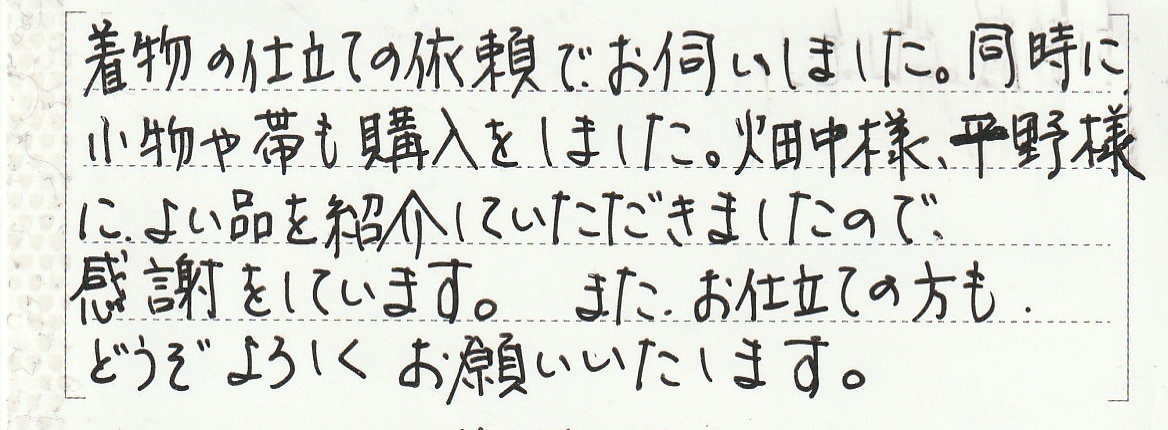 着物の仕立ての依頼で、お伺いしました。同時に、
小物や帯も購入をしました。畑中様、平野様
に、よい品を紹介していただきましたので、
感謝をしています。 また、お仕立ての方も、
どうぞよろしくお願いいたします。